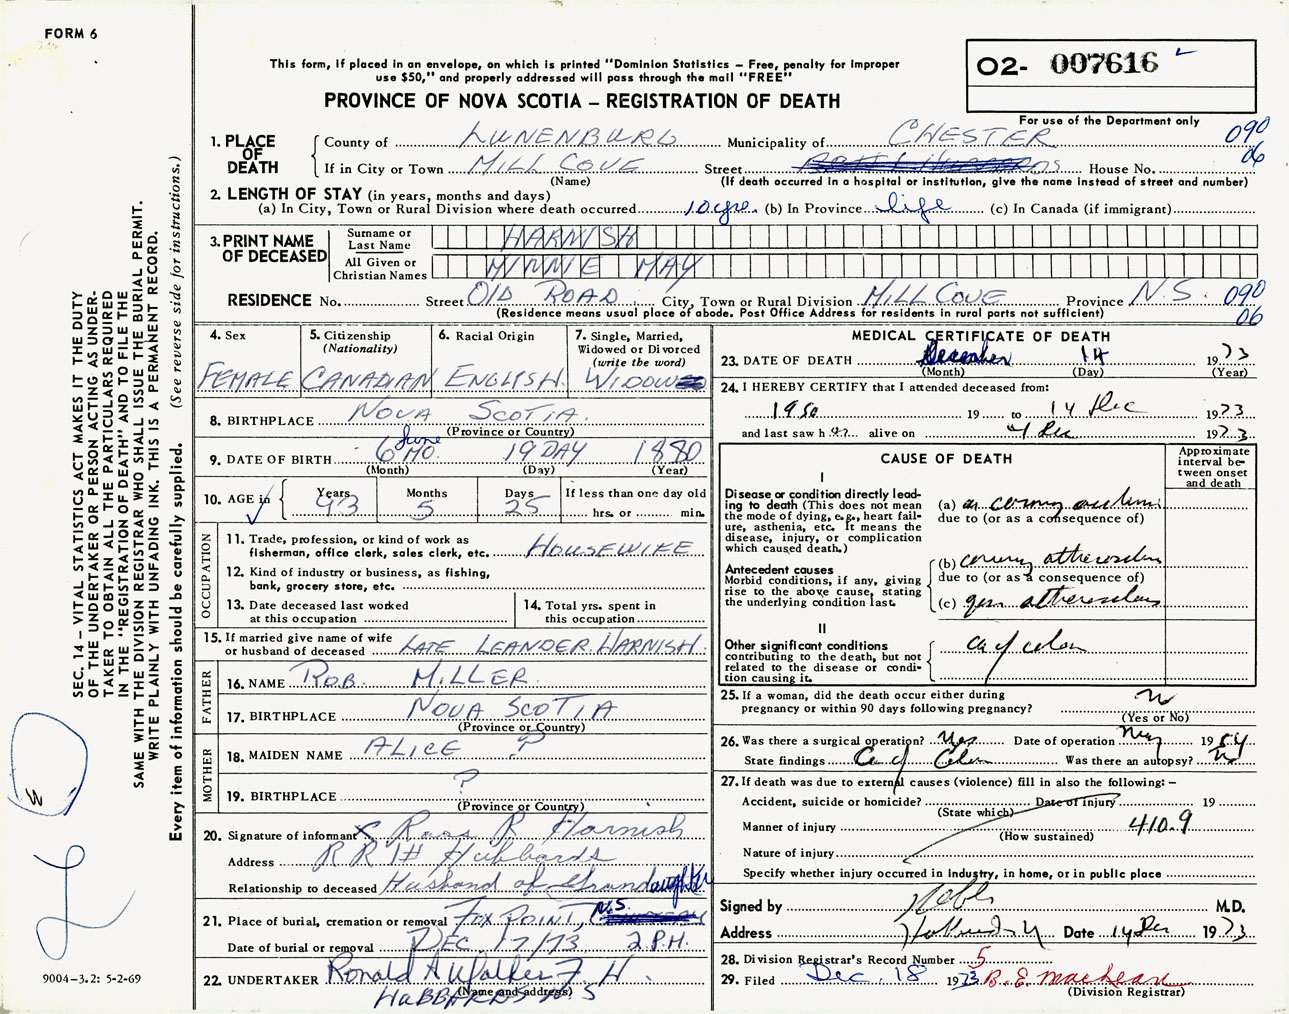 FORM 6
This form, if placed in an envelope, on which is printed "Dominion Statistics – Free, penalty for improper
use $50," and properly addressed will pass through the mail "FREE"
PROVINCE OF NOVA SCOTIA – REGISTRATION OF DEATH
O2- 007616
For use of the Department only
090
06
1. PLACE OF DEATH County of LUNENBURG Municipality of CHESTER
If in City or Town MILL COVE Street House No.
(Name) (If death occurred in a hospital or institution, give the name instead of street and number)
2. LENGTH OF STAY (in years, months and days)
(a) In City, Town or Rural Division where death occurred 10 yrs. (b) In Province life (c) In Canada (if immigrant)
3. PRINT NAME OF DECEASED Surname or Last Name HARNISH
All Given or Christian Names MINNIE MAY
RESIDENCE No. Street OLD ROAD City, Town or Rural Division MILL COVE Province N.S. 090
06
(Residence means usual place of abode. Post Office Address for residents in rural parts not sufficient)
4. Sex 5. Citizenship (Nationality) 6. Racial Origin 7. Single, Married, Widowed or Divorced (write the word)
FEMALE CANADIAN ENGLISH WIDOW
8. BIRTHPLACE NOVA SCOTIA
(Province or Country)
June
9. DATE OF BIRTH 6 MO. 19 DAY 1880
(Month) (Day) (Year)
10. AGE in Years Months Days If less than one day old
93 5 25 hrs. or min.
OCCUPATION
11. Trade, profession or kind of work as
fisherman, office clerk, sales clerk, etc. HOUSEWIFE
12. Kind of industry or business, as fishing,
bank, grocery store, etc.
13. Date deceased last worked
at this occupation
14. Total yrs. spent in
this occupation
15. If married give name of wife
or husband of deceased LATE LEANDER HARNISH
FATHER
16. NAME ROB. MILLER
17. BIRTHPLACE NOVA SCOTIA
(Province or Country)
MOTHER
18. MAIDEN NAME ALICE ?
19. BIRTHPLACE ?
(Province or Country)
20. Signature of informant X Ross R Harnish
Address RR 1# Hubbards
Relationship to deceased Husband of Grandaughter
21. Place of burial, cremation or removal FOX POINT, N.S.
Date of burial or removal DEC. 17/73 2 P.M.
22. UNDERTAKER Ronald A Walker F. H.
(Name and address)
HUBBARDS N S
MEDICAL CERTIFICATE OF DEATH
23. DATE OF DEATH December 14 1973
(Month) (Day) (Year)
24. I HEREBY CERTIFY that I attended deceased from:
1950 19 to 14 Dec 1973
and last saw h er alive on 4 Dec 1973
CAUSE OF DEATH
Approximate interval between onset and death
I
Disease or condition directly leading to death (This does not mean the mode of dying, e.g., heart failure, asthenia, etc. It means the disease, injury, or complication which caused death.)
(a)
due to (or as a consequence of)
Antecedent causes
Morbid conditions, if any, giving rise to the above cause, stating the underlying condition last.
(b) coronary atherosclerosis
due to (or as a consequence of)
(c) gen atherosclerosis
II
Other significant conditions contributing to the death, but not related to the disease or condition causing it.
Ca of colon
25. If a woman, did the death occur either during
pregnancy or within 90 days following pregnancy? No
(Yes or No)
26. Was there a surgical operation? Yes Date of operation May 1954
State findings Ca of Colon Was there an autopsy? No
27. If death was due to external causes (violence) fill in also the following: –
Accident, suicide or homicide? Date of injury 19
(State which)
Manner of injury 410.9
(How sustained)
Nature of injury
Specify whether injury occurred in Industry, in home, or in public place
Signed by M.D.
Address Date 14 Dec 1973
28. Division Registrar's Record Number 5
29. Filed Dec. 18 1973 B. E. MacLean
(Division Registrar)
SEC. 14 – VITAL STATISTICS ACT MAKES IT THE DUTY
OF THE UNDERTAKER OR PERSON ACTING AS UNDER-
TAKER TO OBTAIN ALL THE PARTICULARS REQUIRED
IN THE "REGISTRATION OF DEATH" AND TO FILE THE
SAME WITH THE DIVISION REGISTRAR WHO SHALL ISSUE THE BURIAL PERMIT.
WRITE PLAINLY WITH UNFADING INK. THIS IS A PERMANENT RECORD.
Every item of information should be carefully supplied. (See reverse side for instructions.)
9004–3.2: 5-2-69